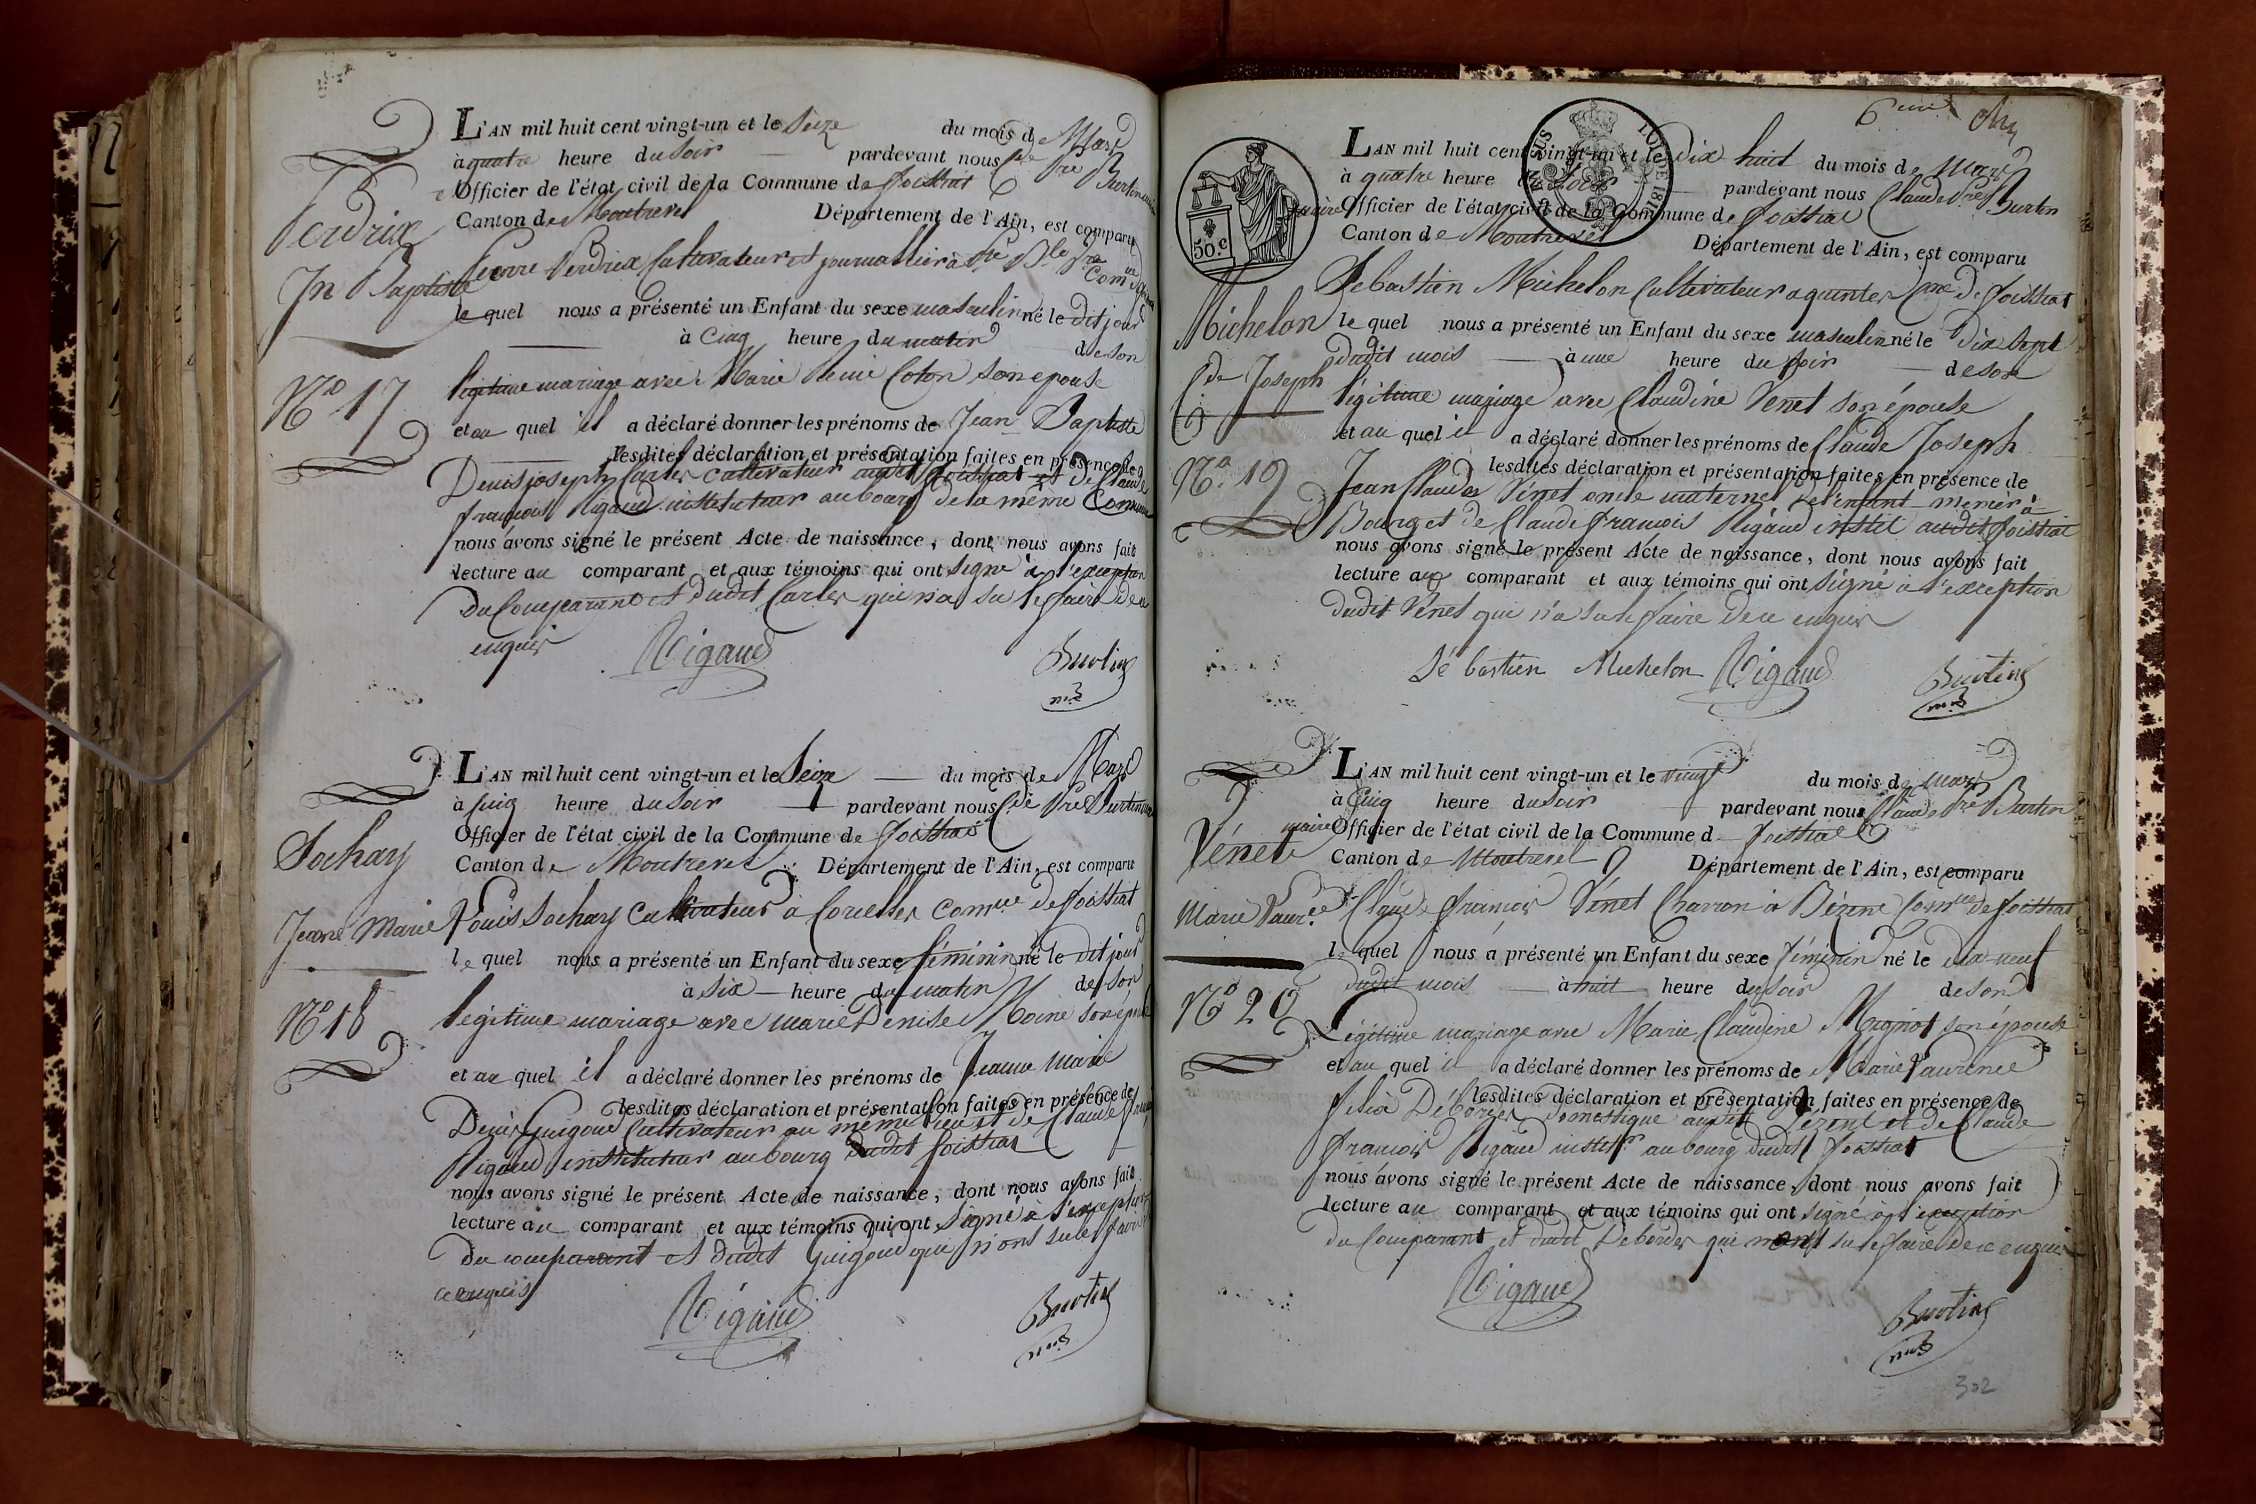 Perdrix
Jn Baptiste
No 17
L'AN mil huit cent vingt-un et le Seize du mois de Mars
à quatre heure du Soir pardevant nous Cde Pre Burtin maire
Officier de l'état civil de la Commune de foissiat
Canton de Montrevel Département de l'Ain, est comparu
Pierre Perdrix Cultivateur et journallier à
le quel nous a présenté un Enfant du sexe masculin né le dit jour
à Cinq heure du matin de son
légitime mariage avec Marie Coton son épouse
et au quel il a déclaré donner les prénoms de Jean Baptiste
lesdites déclaration et présentation faites en présence de
Denis joseph Carles cultivateur audit foissiat et de Claude
françois Rigaud instituteur au bourg de la même Commune
nous avons signé le présent Acte de naissance, dont nous avons fait
lecture au comparant et aux témoins qui ont Signé à l'exception
du Comparant et dudit Carles qui n'a su le faire de ce
enquis
Rigaud
Burtin
Sochay
Jeanne Marie
No 18
L'AN mil huit cent vingt-un et le Seize du mois de Mars
à Cinq heure du Soir pardevant nous Cde Pre Burtin maire
Officier de l'état civil de la Commune de foissiat
Canton de Montrevel Département de l'Ain, est comparu
Louis Sochay Cultivateur à Corcelles comune de foissiat
le quel nous a présenté un Enfant du sexe féminin né le dit jour
à Six heure du matin de son
légitime mariage avec marie Denise Moine son épouse
et au quel il a déclaré donner les prénoms de Jeanne marie
lesdites déclaration et présentation faites en présence de
Denis Guigoud Cultivateur au même lieu et de Claude françois
Rigaud instituteur au bourg dudit foissiat
nous avons signé le présent Acte de naissance, dont nous avons fait
lecture au comparant et aux témoins qui ont Signé à l'exception
du comparant et dudit Guigoud qui n'ont su le faire de
ce enquis
Rigaud
Burtin
6eme
50.c
LOI DE 181
Michelon
Cde Joseph
No. 19
L'AN mil huit cent vingt-un et le Dix huit du mois de Mars
à quatre heure du Soir pardevant nous Claude Pre Burtin
maire Officier de l'état civil de la Commune de foissiat
Canton de Montrevel Département de l'Ain, est comparu
Sebastien Michelon Cultivateur Cne de foissiat
le quel nous a présenté un Enfant du sexe masculin né le Dix Sept
dudit mois à une heure du Soir de son
légitime mariage avec Claudine Venet son épouse
et au quel il a déclaré donner les prénoms de Claude Joseph
lesdites déclaration et présentation faites en présence de
Jean Claude Vénet oncle maternel de l'enfant à
Bourg et de Claude françois Rigaud instit audit foissiat
nous avons signé le présent Acte de naissance, dont nous avons fait
lecture aux comparant et aux témoins qui ont Signé à l'exception
dudit Vénet qui n'a su le faire de ce enquis
Sébastien Michelon
Rigaud
Burtin
Vénet
Marie Laurce
No 20
L'AN mil huit cent vingt-un et le vingt du mois de mars
à Cinq heure du Soir pardevant nous Claude Pre Burtin
maire Officier de l'état civil de la Commune d foissiat
Canton de Montrevel Département de l'Ain, est comparu
Claude françois Vénet Charron à Bézene Commune de foissiat
le quel nous a présenté un Enfant du sexe féminin né le dix neuf
dudit mois à huit heure du Soir de son
légitime mariage avec Marie Claudine Mignot son épouse
et au quel il a déclaré donner les prénoms de Marie Laurence
lesdites déclaration et présentation faites en présence de
Débordes domestique audit Bézene et de Claude
françois Rigaud instr au bourg dudit foissiat
nous avons signé le présent Acte de naissance, dont nous avons fait
lecture au comparant et aux témoins qui ont signé à l'exception
du Comparant et dudit Debordes qui n'ont su le faire de ce enquis
Rigaud
Burtin
302